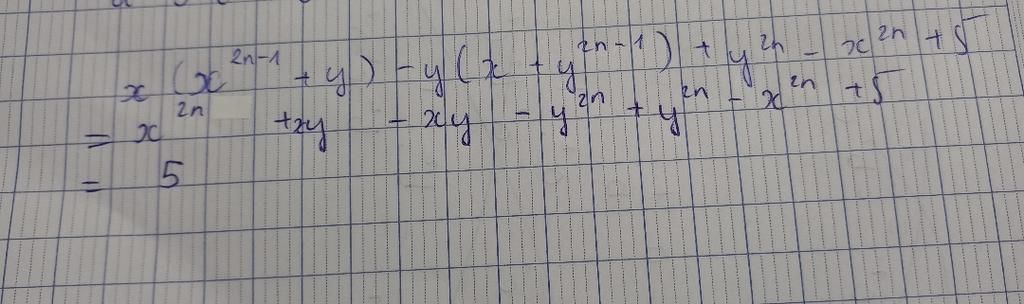 x (x^{2n-1} + y) - y (x + y^{2n-1}) + y^{2n} - x^{2n} + 5
= x^{2n} + xy - xy - y^{2n} + y^{2n} - x^{2n} + 5
= 5